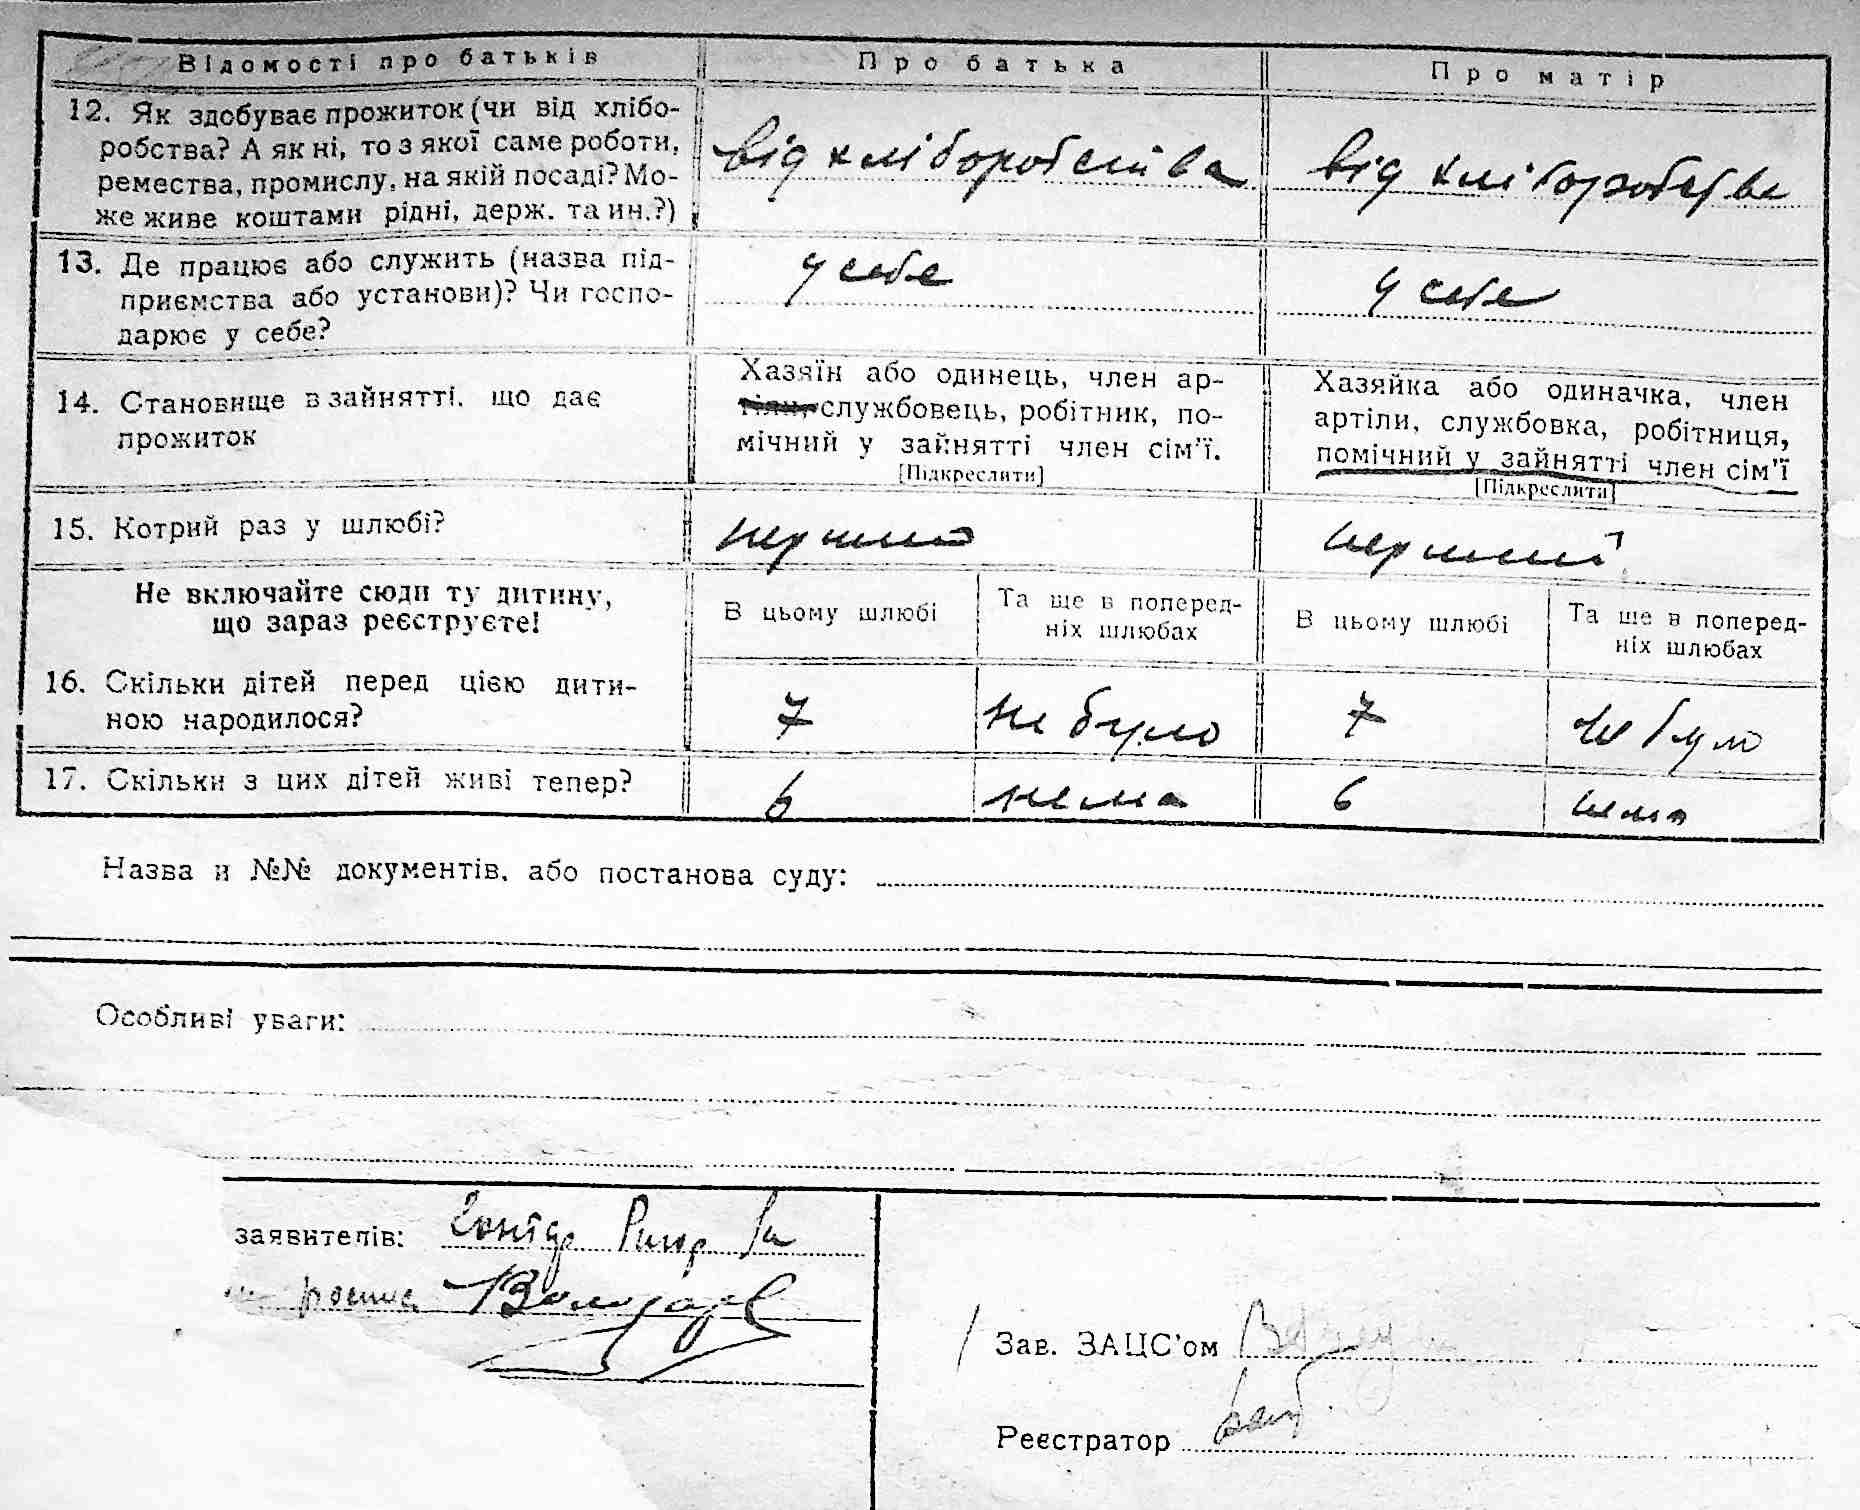 Відомості про батьків
Про батька
Про матір
12. Як здобуває прожиток (чи від хлібо-
робства? А як ні, то з якої саме роботи,
ремества, промислу, на якій посаді? Мо-
же живе коштами рідні, держ. та ин.?)
від хліборобства
від хліборобства
13. Де працює або служить (назва під-
приємства або установи)? Чи госпо-
дарює у себе?
у себе
у себе
14. Становище в зайнятті, що дає
прожиток
Хазяїн або одинець, член ар-
тіли, службовець, робітник, по-
мічний у зайнятті член сім'ї.
[Підкреслити]
Хазяйка або одиначка, член
артіли, службовка, робітниця,
помічний у зайнятті член сім'ї
[Підкреслити]
15. Котрий раз у шлюбі?
перший
перший
Не включайте сюди ту дитину,
що зараз реєструєте!
В цьому шлюбі
Та ще в поперед-
ніх шлюбах
В цьому шлюбі
Та ще в поперед-
ніх шлюбах
16. Скільки дітей перед цією дити-
ною народилося?
7
не було
7
не було
17. Скільки з цих дітей живі тепер?
6
нема
6
нема
Назва й №№ документів, або постанова суду:
Особливі уваги:
заявителів:
Зав. ЗАЦС'ом
Реєстратор